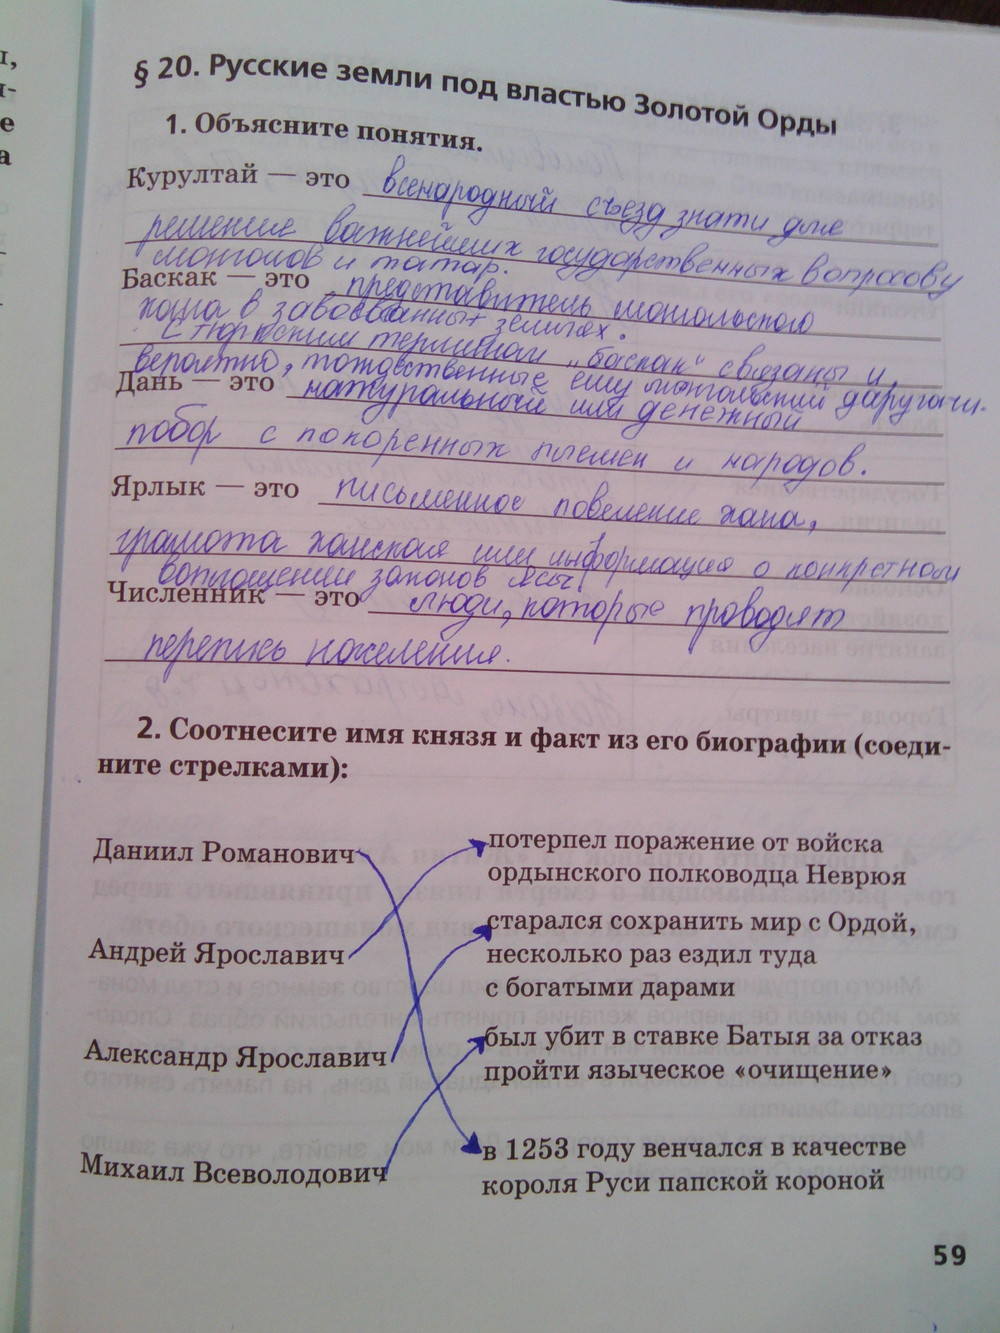 § 20. Русские земли под властью Золотой Орды
1. Объясните понятия.
Курултай — это всенародный съезд знати для
решения важнейших государственных вопросов у
монголов и татар.
Баскак — это представитель монгольского
хана в завоёванных землях.
С тюркским термином „баскак“ связаны и,
вероятно, тождественные ему монгольский даругачи.
Дань — это натуральный или денежный
побор с покоренных племен и народов.
Ярлык — это письменное повеление хана,
грамота ханская или информация о конкретном
воплощении законов Ясы
Численник — это люди, которые проводят
перепись населения.
2. Соотнесите имя князя и факт из его биографии (соеди-
ните стрелками):
Даниил Романович
Андрей Ярославич
Александр Ярославич
Михаил Всеволодович
потерпел поражение от войска
ордынского полководца Неврюя
старался сохранить мир с Ордой,
несколько раз ездил туда
с богатыми дарами
был убит в ставке Батыя за отказ
пройти языческое «очищение»
в 1253 году венчался в качестве
короля Руси папской короной
59